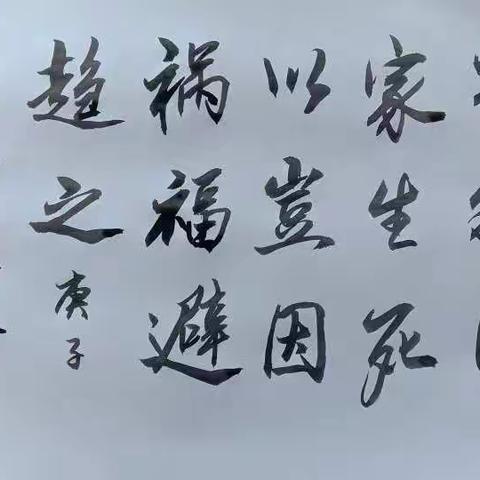 家生死
以豈因
祸福避
趋之
庚子